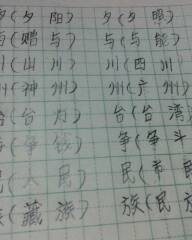 夕(夕阳) 夕(夕照)
与(赠与) 与(与能)
川(山川) 川(四川)
州(神州) 州(广州)
台(台灯) 台(台湾)
争(争钱) 争(争斗)
民(人民) 民(市民)
族(藏族) 族(民族